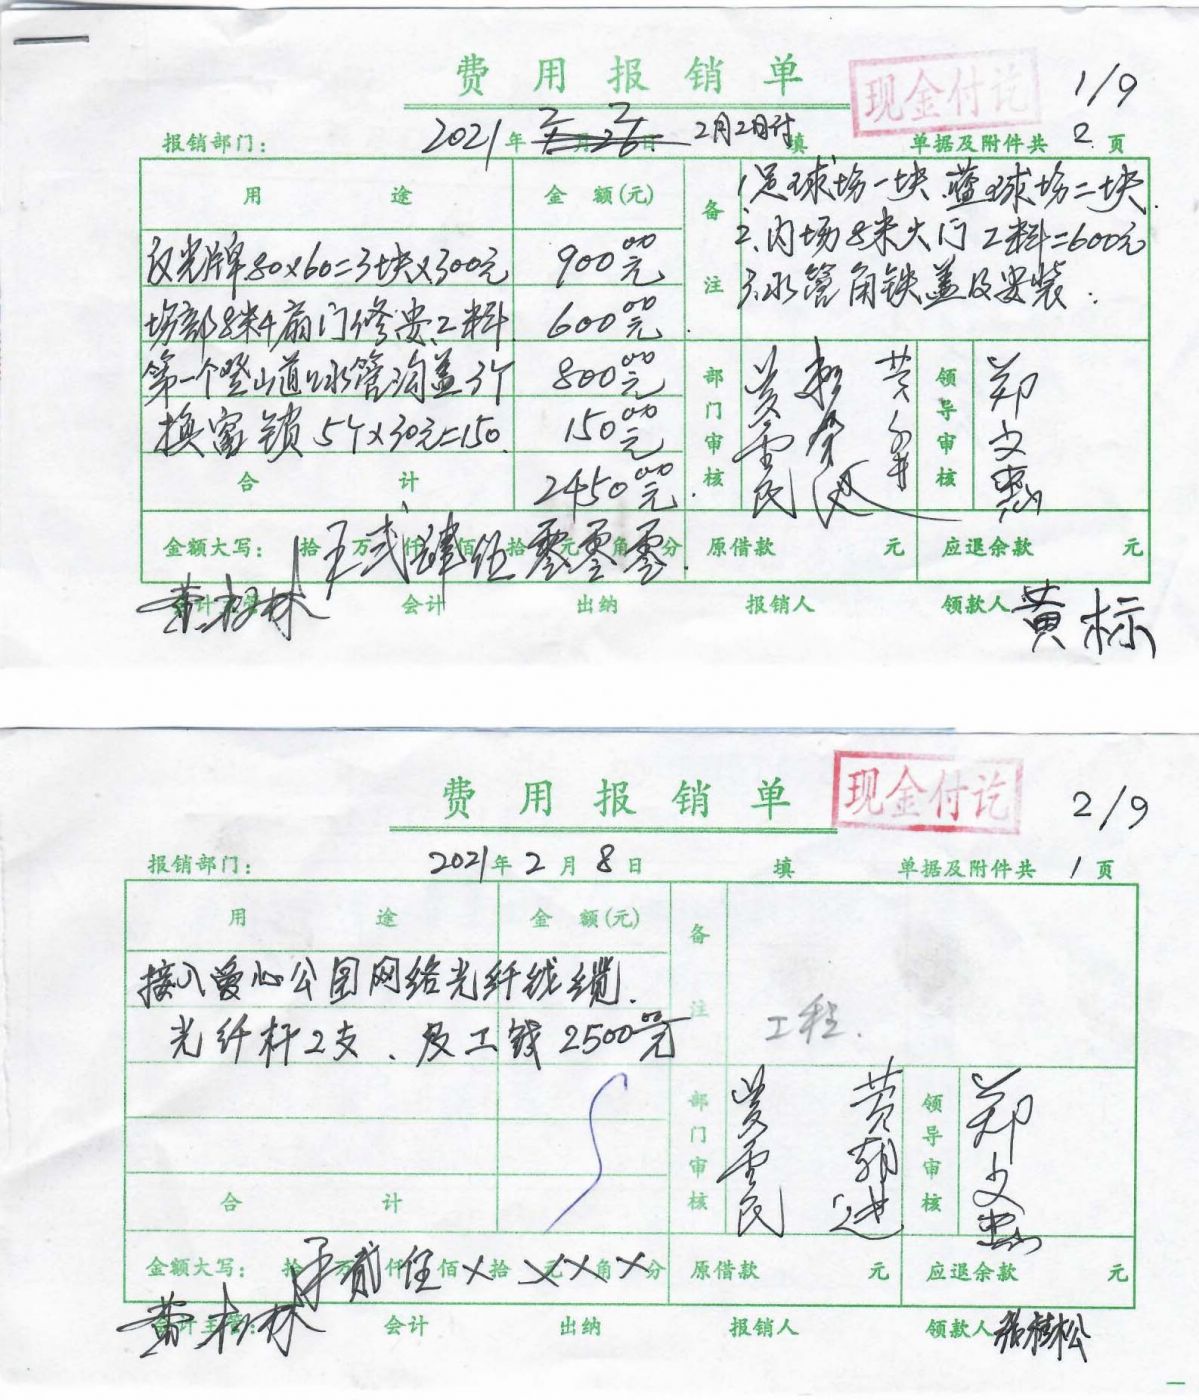 费用报销单
现金付讫
1/9
报销部门:
2021年2月2日
2月2日付
填
单据及附件共2页
用途
金额(元)
备注
1.足球场一块.蓝球场二块.
2.内场8米大门工料=600元
3.水管角铁盖及安装.
反光牌80×60=3块×300元
900元
场部8米4扇门修安工料
600元
第一个登山道口水管沟盖3个
800元
换富锁5个×30元=150.
150元
合计
2450元
部门审核
领导审核
金额大写:
拾万仟佰拾元角分
原借款
元
应退余款
元
会计
出纳
报销人
领款人
黄标
费用报销单
现金付讫
2/9
报销部门:
2021年2月8日
填
单据及附件共1页
用途
金额(元)
备注
接入爱心公园网络光纤线缆.
光纤杆2支、及工钱2500元
工程.
部门审核
领导审核
合计
金额大写:
拾万仟佰拾元角分
原借款
元
应退余款
元
会计主管:
会计
出纳
报销人
领款人